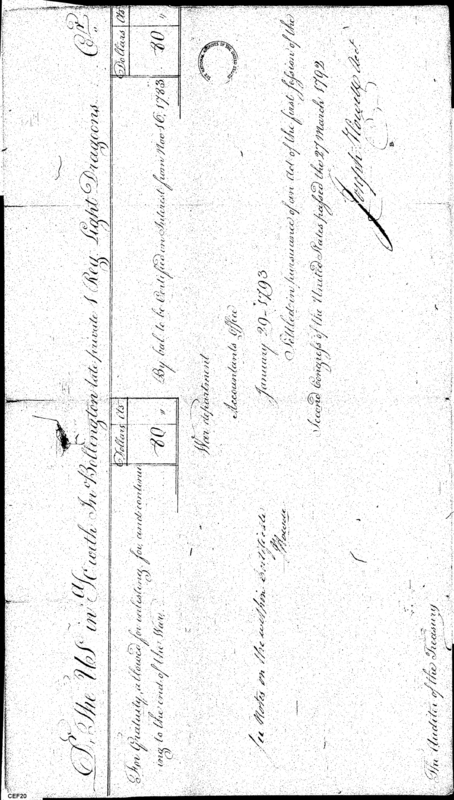 Dr. The US in a/c with Jno Bellington late private 1 Reg Light Dragoons Cr.
Dollars Cts
For Gratuity, allowed for enlisting for and continu
ing to the end of the War,
80 "
Dollars Cts
By bal to be Certified on Interest from Nov 16, 1783
80 "
War department
Accountants Office
January 29 - 1793
Settled in pursuance of an Act of the first Session of the
Second Congress of the United States passed the 27 March 1792
Joseph Howell Acct
See Notes on the within Certificate
The Auditor of the Treasury
CEF20